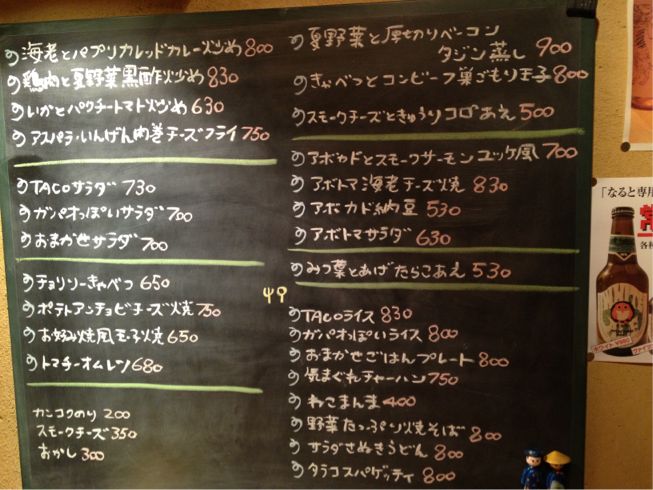 海老とパプリカレッドカレー炒め 800
鶏肉と夏野菜黒酢炒め 830
いかとパクチートマト炒め 630
アスパラ・いんげん肉巻チーズフライ 750
TACOサラダ 730
ガパオっぽいサラダ 700
おまかせサラダ 700
チョリソーきゃべつ 650
ポテトアンチョビチーズ焼 750
お好み焼風玉子焼 650
トマチーオムレツ 680
カンコクのり 200
スモークチーズ 350
おかし 300
夏野菜と厚切りベーコン
タジン蒸し 900
きゃべつとコンビーフ巣ごもり玉子 800
スモークチーズときゅうりコロコロあえ 500
アボカドとスモークサーモンユッケ風 700
アボトマ海老チーズ焼 830
アボカド納豆 530
アボトマサラダ 630
みつ葉とあげたらこあえ 530
TACOライス 830
ガパオっぽいライス 800
おまかせごはんプレート 800
気まぐれチャーハン 750
ねこまんま 400
野菜たっぷり焼そば 800
サラダさぬきうどん 800
タラコスパゲッティ 800
「なると専用